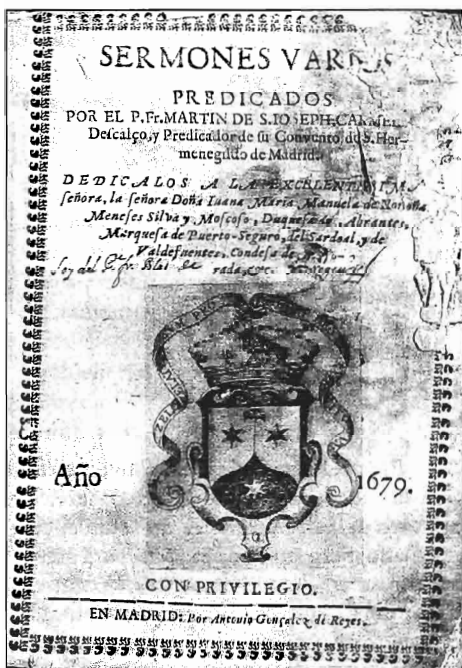 SERMONES VARIOS
PREDICADOS
POR EL P. Fr. MARTIN DE S. IOSEPH, CARMEL.
Descalço, y Predicador de su Convento de S. Her-
menegildo de Madrid.
DEDICALOS A LA EXCELENTISSIMA
señora, la señora Doña Iuana Maria Manuela de Noroña,
Meneses Silva y Moscoso, Duquesa de Abrantes,
Marquesa de Puerto-Seguro, del Sardoal, y de
Valdefuentes, Condesa de
Soy del Pe fr Blas de
rada, &c.
ZELO ZELATUS SUM PRO
Año 1679.
CON PRIVILEGIO.
EN MADRID: Por Antonio Gonçalez de Reyes.